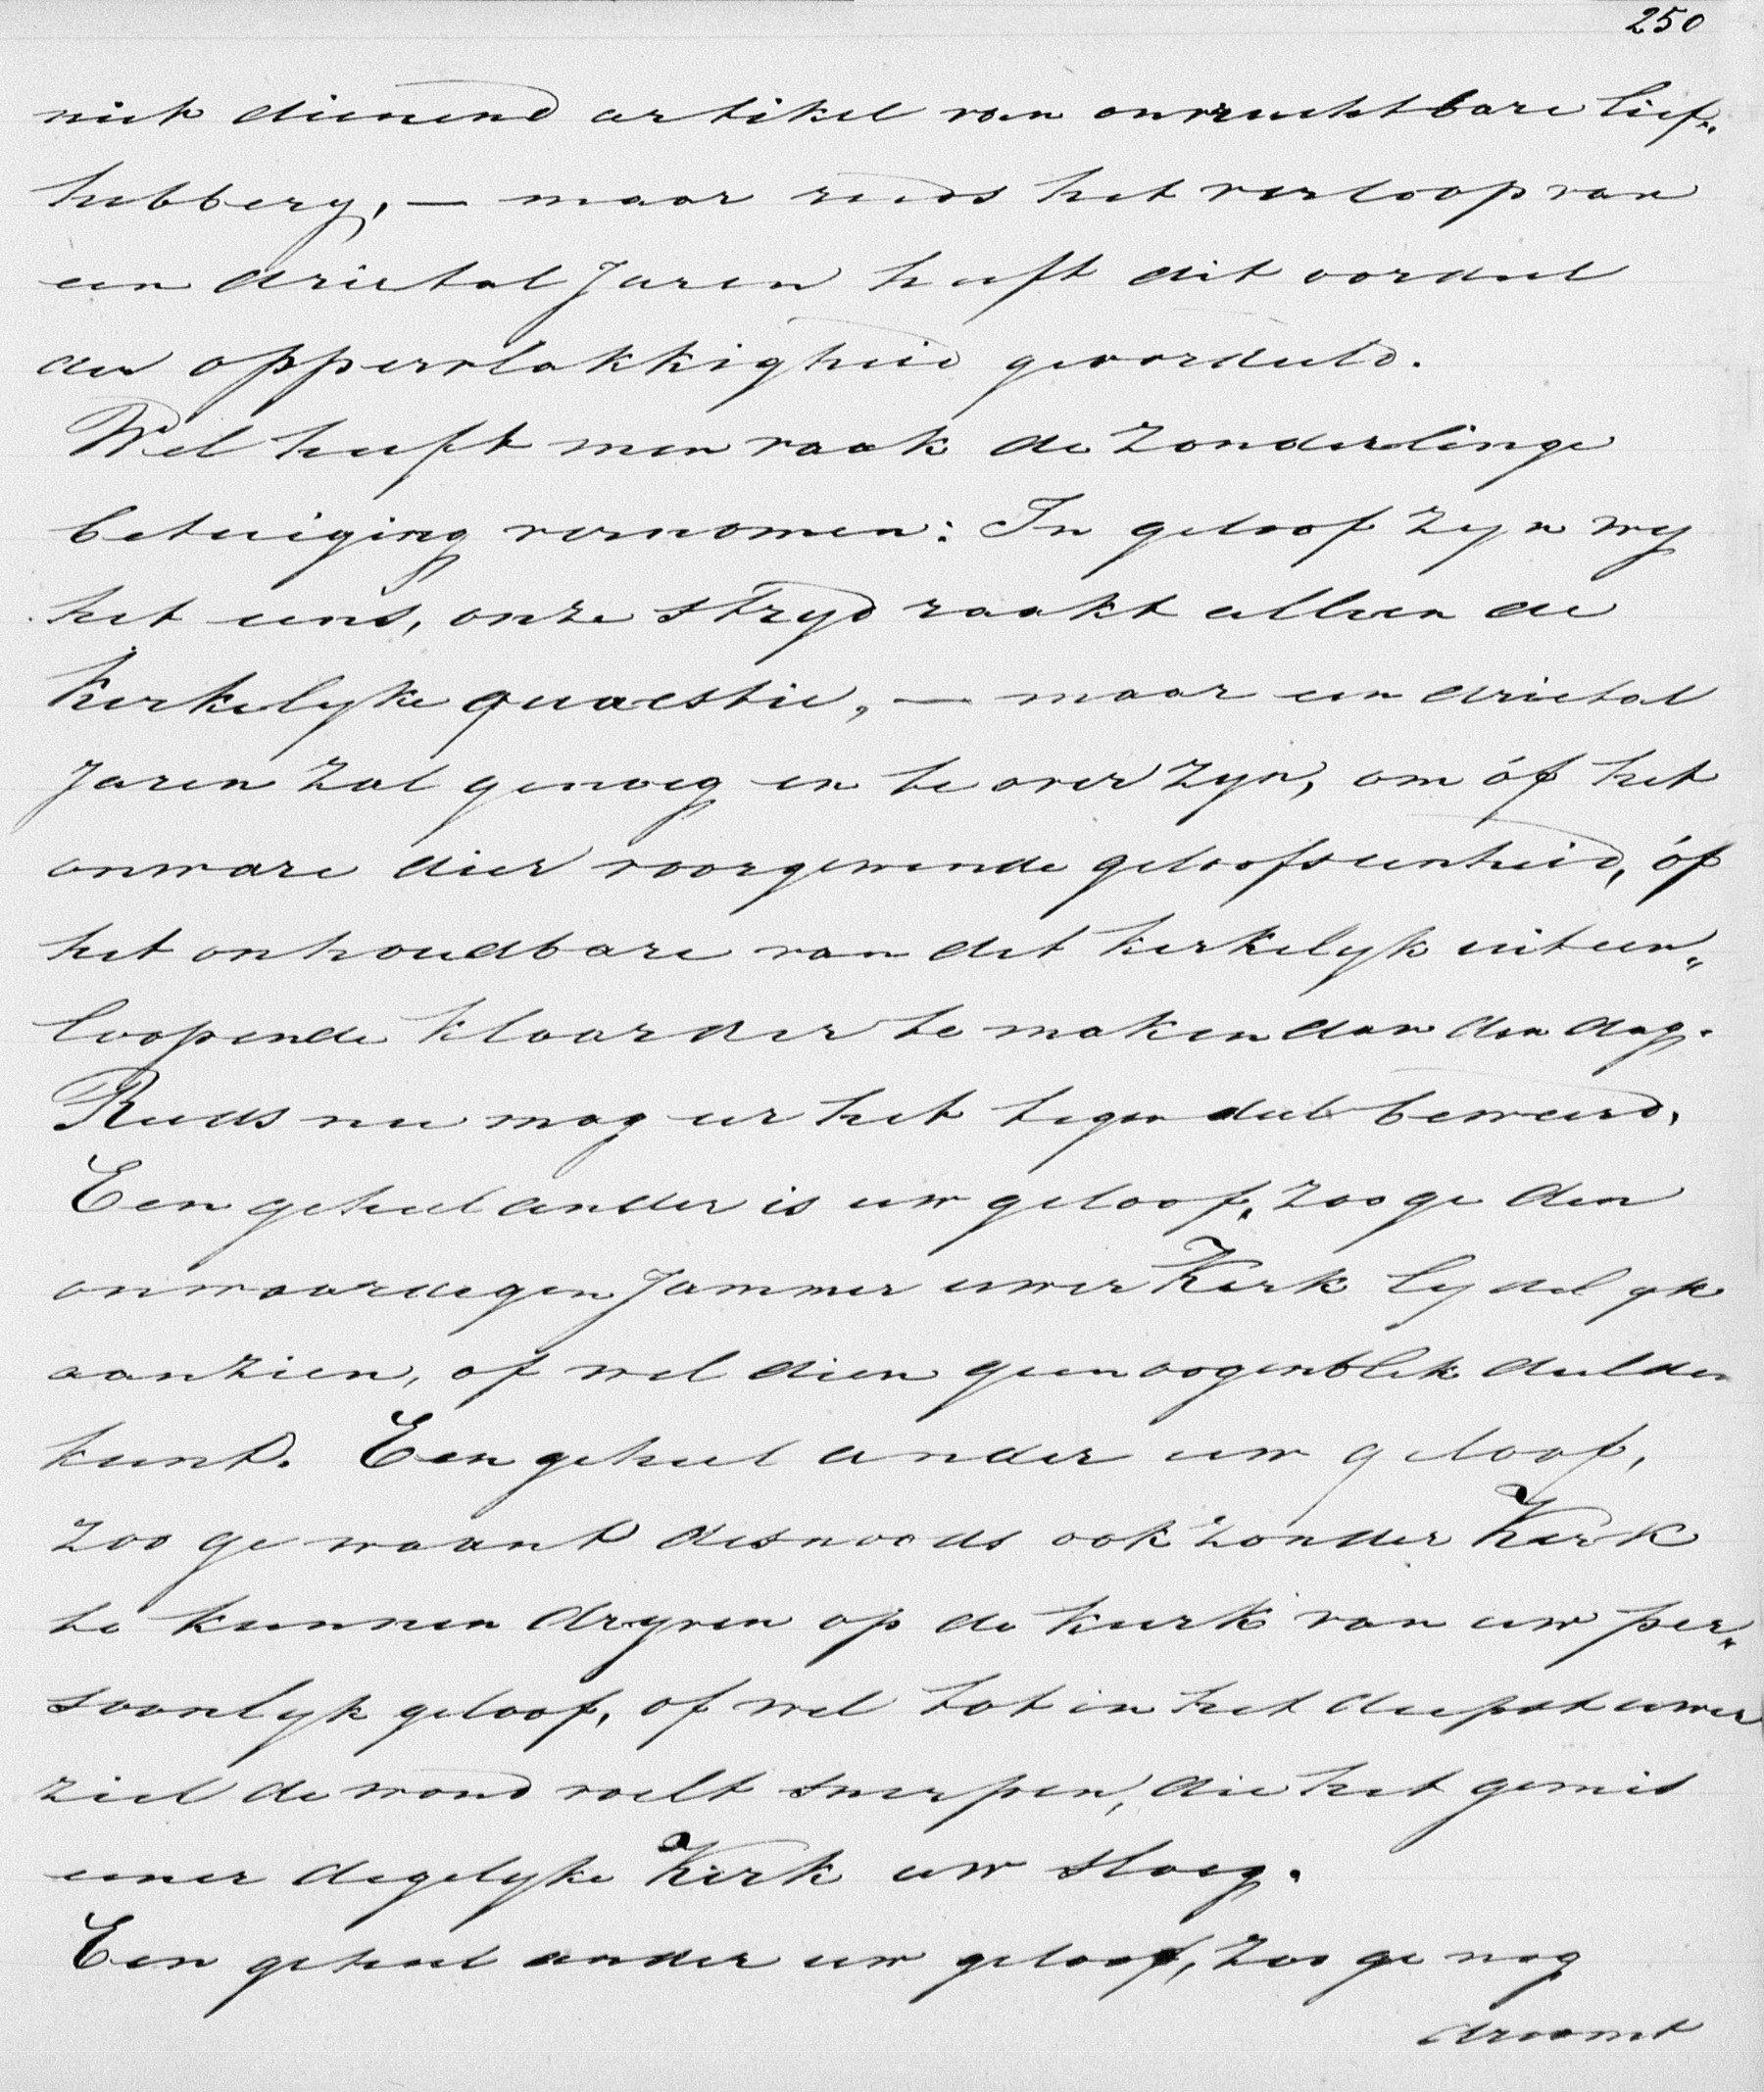 250
niet dienend artikel van onvruchtbare lief„
hebbery, — maar reeds het verloop van
een drietal Jaren heeft dit oordeel
der oppervlakkigheid geoordeeld.
Wel heeft men vaak de zonderlinge
betuiging vernomen: In geloof zyn wy
het eens, onze stryd raakt alleen de
Kerkelyke quaestie, — maar een drietal
Jaren zal genoeg en te over zyn, om óf het
onware dier voorgewende geloofseenheid, óf
het onhoudbare van dit kerkelyk uiteen„
loopende klaarder te maken dan den dag.
Reeds nu mag er het tegendeel beweerd,
Een geheel ander is uw geloof, zoo ge den
onwaardigen Jammer uwer Kerk lydelyk
aanzien, of wel dien geen oogenblik dulden
kunt. Een geheel ander uw geloof,
zoo ge waant desnoods ook zonder Kerk
te kunnen dryven op de kurk van uw per„
soonlyk geloof, of wel tot in het diepst uwer
ziel de wond voelt snerpen, die het gemis
eener degelyke Kerk uw sloeg.
Een geheel ander uw geloof, zoo ge nog
droomt